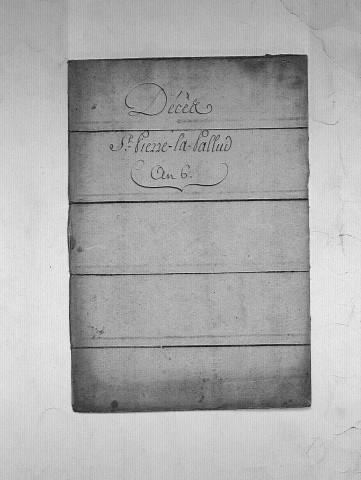 Décès
St. Pierre-la-Pallud
An 6.